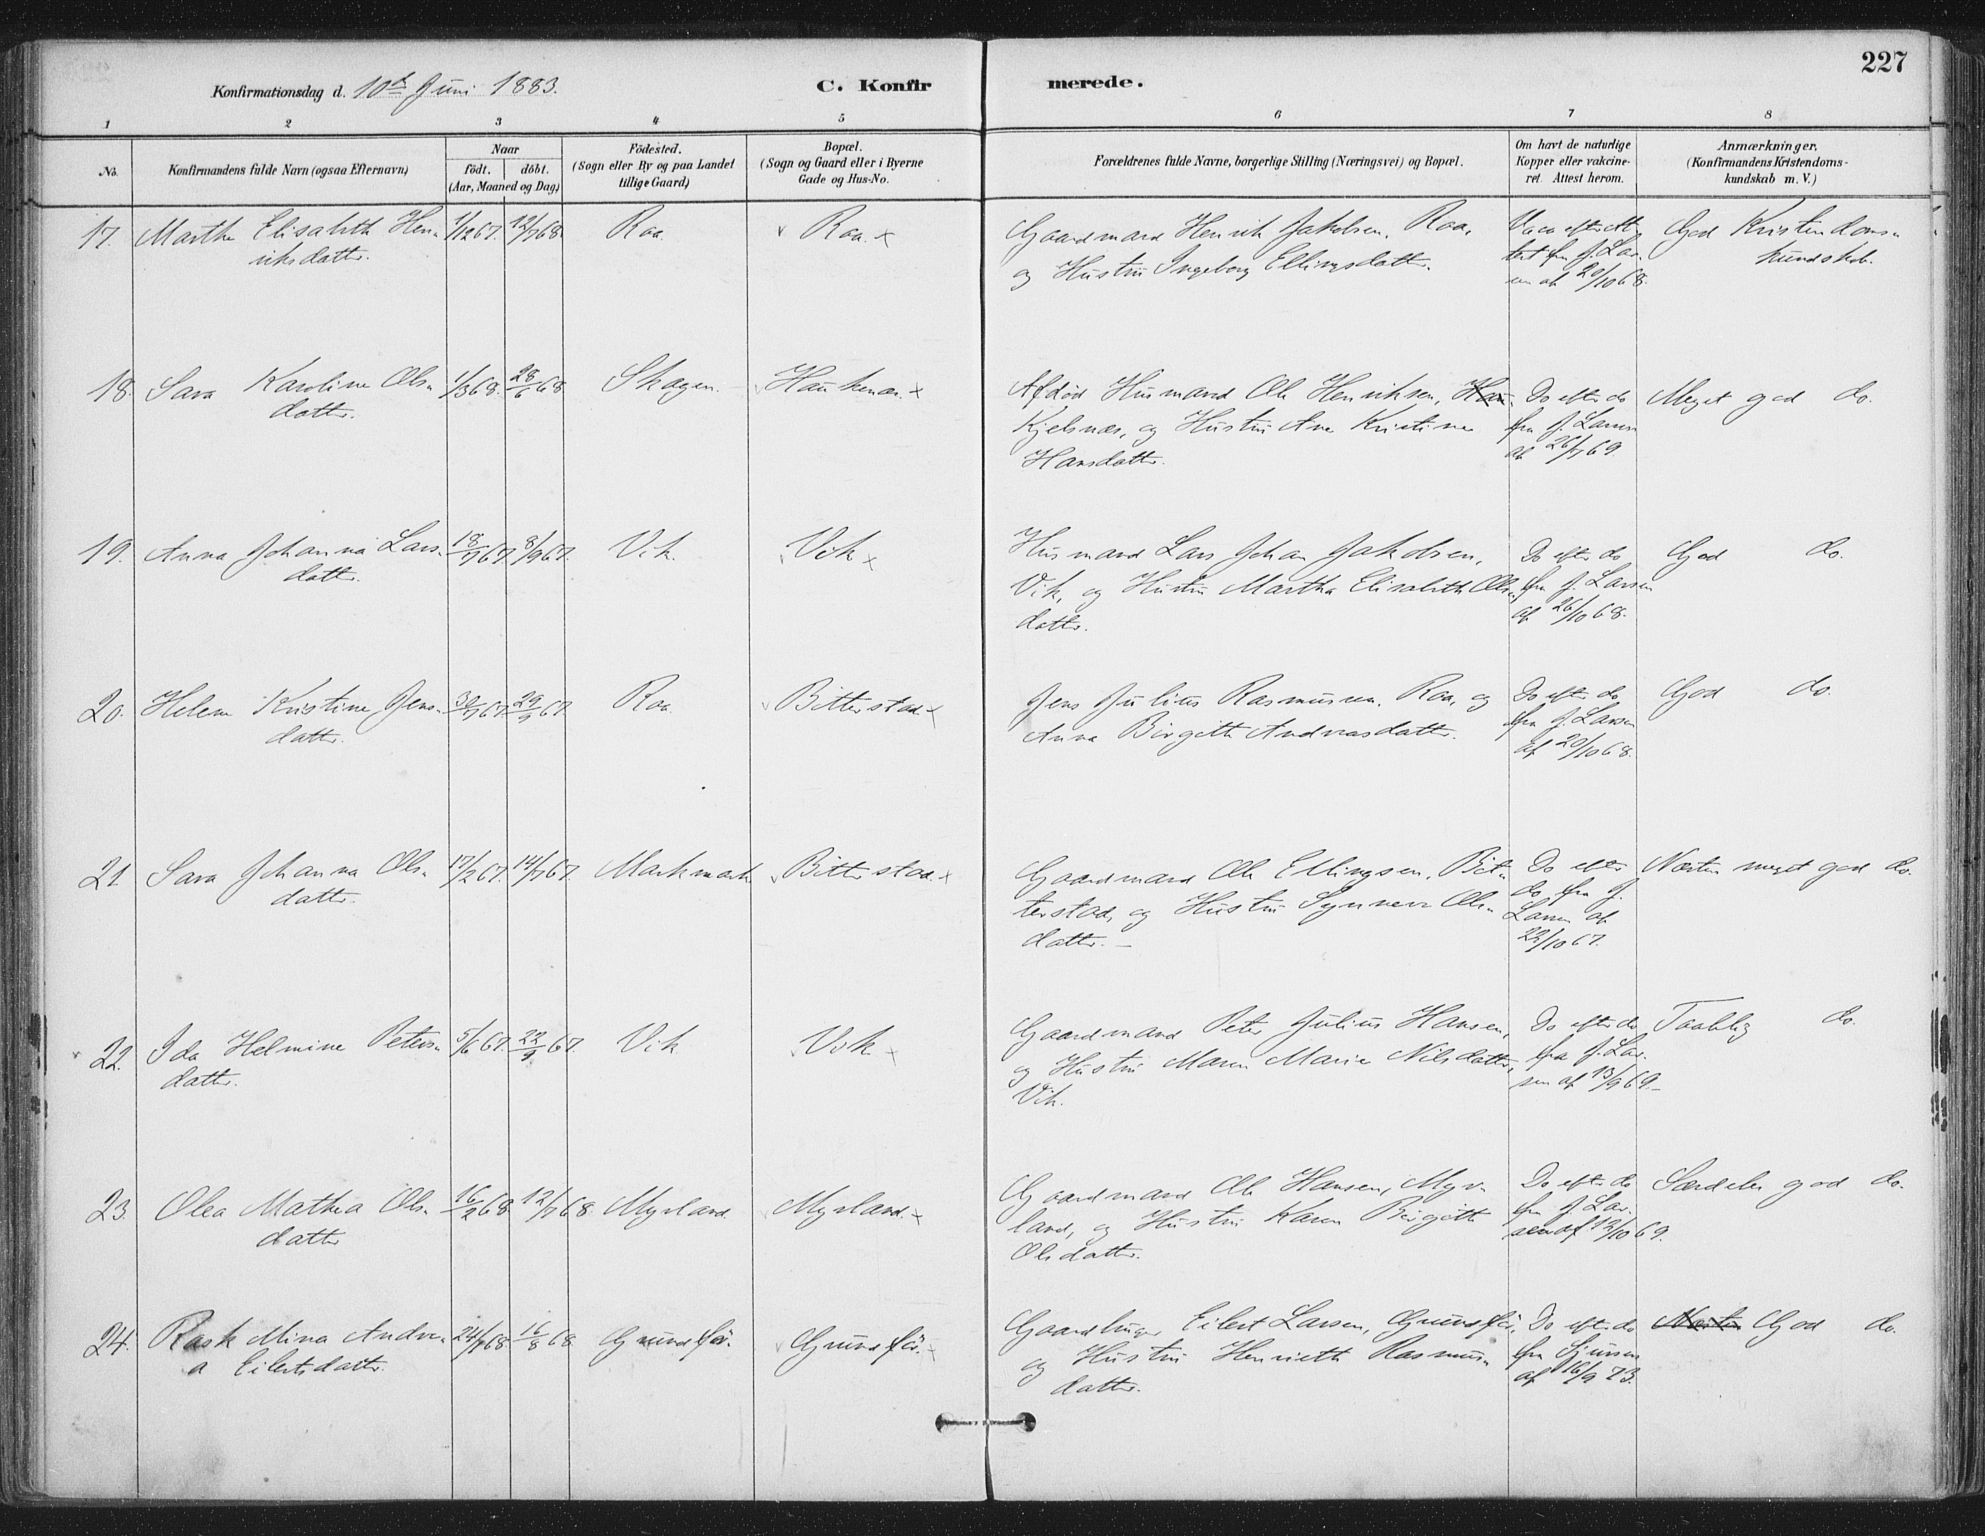 227
Konfirmationsdag d. 10de Juni 1883.
C. Konfirmerede.
1 2 3 4 5 6 7 8
No.
Konfirmandens fulde Navn (ogsaa Efternavn)
Naar
födt. döbt.
(Aar, Maaned og Dag)
Födested.
(Sogn eller By og paa Landet
tillige Gaard)
Bopæl.
(Sogn og Gaard eller i Byerne
Gade og Hus-No.
Forældrenes fulde Navne, borgerlige Stilling (Næringsvei) og Bopæl.
Om havt de naturlige
Kopper eller vakcine-
ret. Attest herom.
Anmærkninger.
(Konfirmandens Kristendoms-
kundskab m. V.)
17. Martha Elisabeth Hen-
riksdatter.
1/12 67. 12/7 68.
Raa
Raa x
Gaardmand Henrik Jakobsen, Raa,
og Hustru Ingeborg Ellingsdatter.
Vacc efter att
test fra J. Lar-
sen af 20/10 68.
God Kristendoms-
kundskab.
18. Sara Karoline Ols-
datter.
1/3 68. 28/6 68
Skagen
Haukenæs x
Afdød Husmand Ole Henriksen, Hau
Kjelsnæs, og Hustru Ane Kristine
Hansdatter.
Do efter do
fra J. Larsen
af 26/7 69.
Meget god do.
19. Anna Johanna Lars-
datter.
18/7 67. 8/9 67.
Vik.
Vik x
Husmand Lars Johan Jakobsen,
Vik, og Hustru Martha Elisabeth Ols-
datter.
Do efter do
fra J. Larsen
af 26/10 68.
God do.
20. Helene Kristine Jens-
datter.
30/7 67. 29/9 67.
Raa
Bitterstad x
Jens Julius Rasmussen, Raa, og
Anna Birgitte Andreasdatter.
Do efter do
fra J. Larsen
af 20/10 68.
God do.
21. Sara Johanna Ols-
datter.
17/2 67. 14/7 67.
Markmark
Bitterstad x
Gaardmand Ole Ellingsen, Bit-
terstad, og Hustru Synneva Ols-
datter. —
Do efter
do fra J.
Larsen af
22/10 67.
Næsten meget god do.
22. Ida Helmine Peters-
datter.
5/6 67. 22/9 67.
Vik
Vik x
Gaardmand Peter Julius Hansen,
og Hustru Maren Marie Nilsdatter,
Vik.
Do efter do
fra J. Lar-
sen af 13/9 69. —
Taalelig do.
23. Olea Mathea Ols-
datter
16/2 68. 12/7 68.
Myrland
Myrland x
Gaardmand Ole Hansen, Myr-
land, og Hustru Karen Birgitte
Olsdatter.
Do efter do
fra J. Lar-
sen af 12/10 69.
Særdeles god do.
24. Rask Mina Andre-
a Eilertsdatter.
24/4 68. 16/8 68.
Grundfør.
Grundfør. x
Gaardbruger Eilert Larsen, Grundfør,
og Hustru Henriette Rasmus-
datter.
Do efter do
fra Sjursen
af 16/9 73.
Næsten God do.